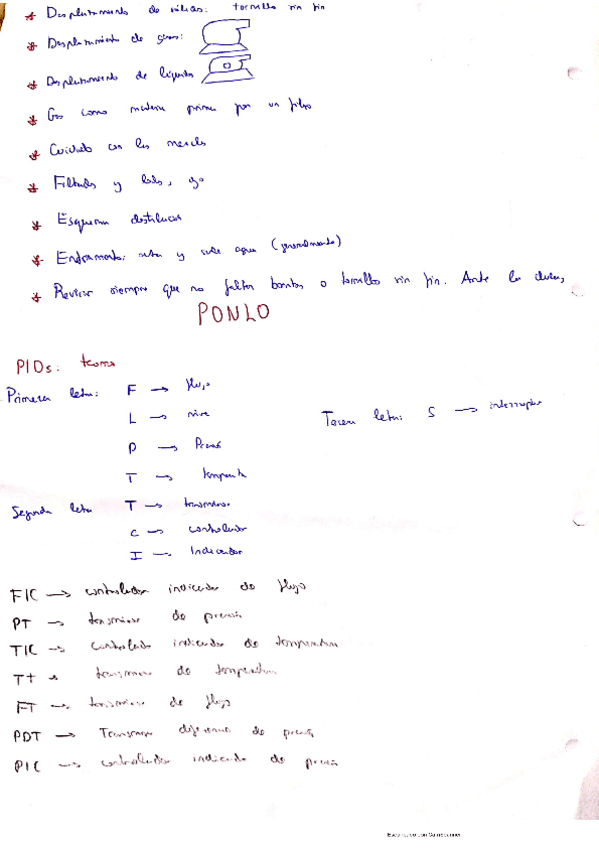 * Desplazamiento de sólidos: tornillo sin fin
* Desplazamiento de gases:
* Desplazamiento de líquidos
* Gas como materia prima por un filtro
* Cuidado con las mezclas
* Filtrado y lodos,
* Esquema destilación
* Enfriamiento: entra y sale agua (generalmente)
* Revisar siempre que no falten bombas o tornillos sin fin. Ante la duda,
PONLO
PIDs: teoría
Primera letra: F → flujo
L → nivel
Tercera letra: S → interruptor
P → Presión
T → temperatura
Segunda letra T → transmisor
C → controlador
I → Indicador
FIC → controlador indicador de flujo
PT → transmisor de presión
TIC → controlador indicador de temperatura
TT → transmisor de temperatura
FT → transmisor de flujo
PDT → Transmisor diferencial de presión
PIC → controlador indicador de presión
Escaneado con CamScanner